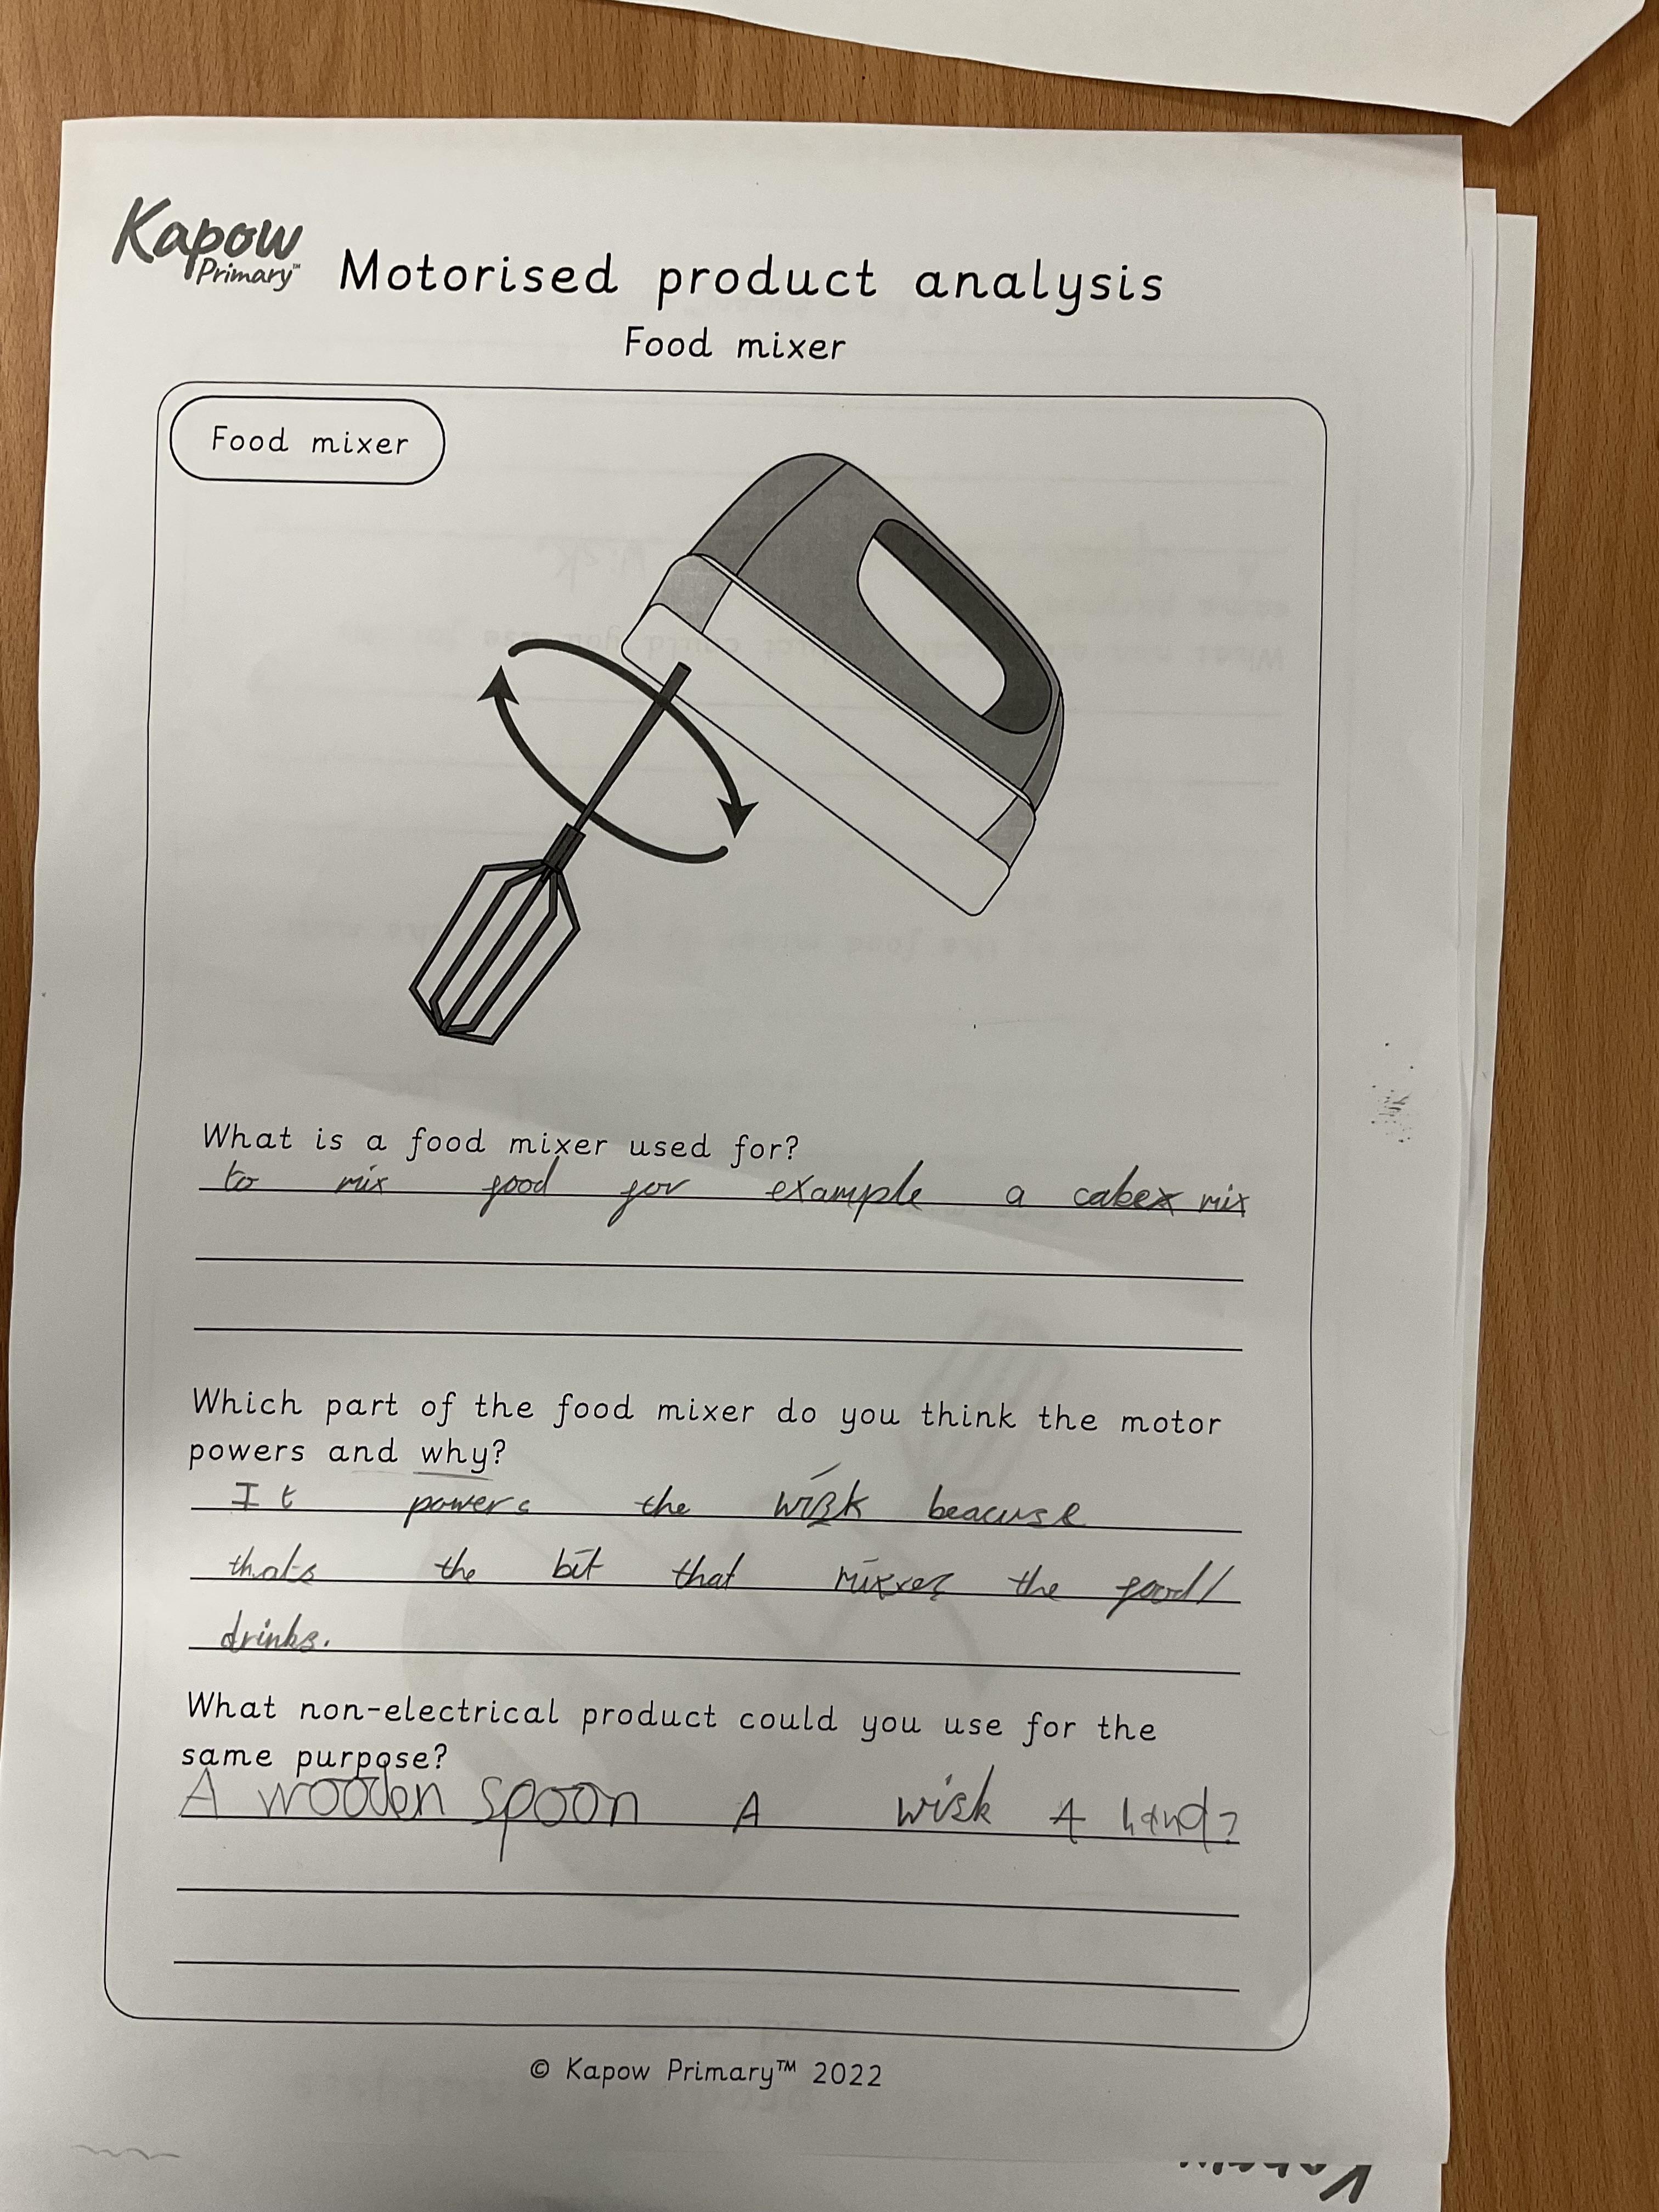 Kapow
Primary™
Motorised product analysis
Food mixer
Food mixer
What is a food mixer used for?
to mix food for example a cake mix
Which part of the food mixer do you think the motor
powers and why?
It powers the wisk beacuse
thats the bit that mixxes the food/
drinks.
What non-electrical product could you use for the
same purpose?
A wooden spoon A wisk A hand?
© Kapow Primary™ 2022